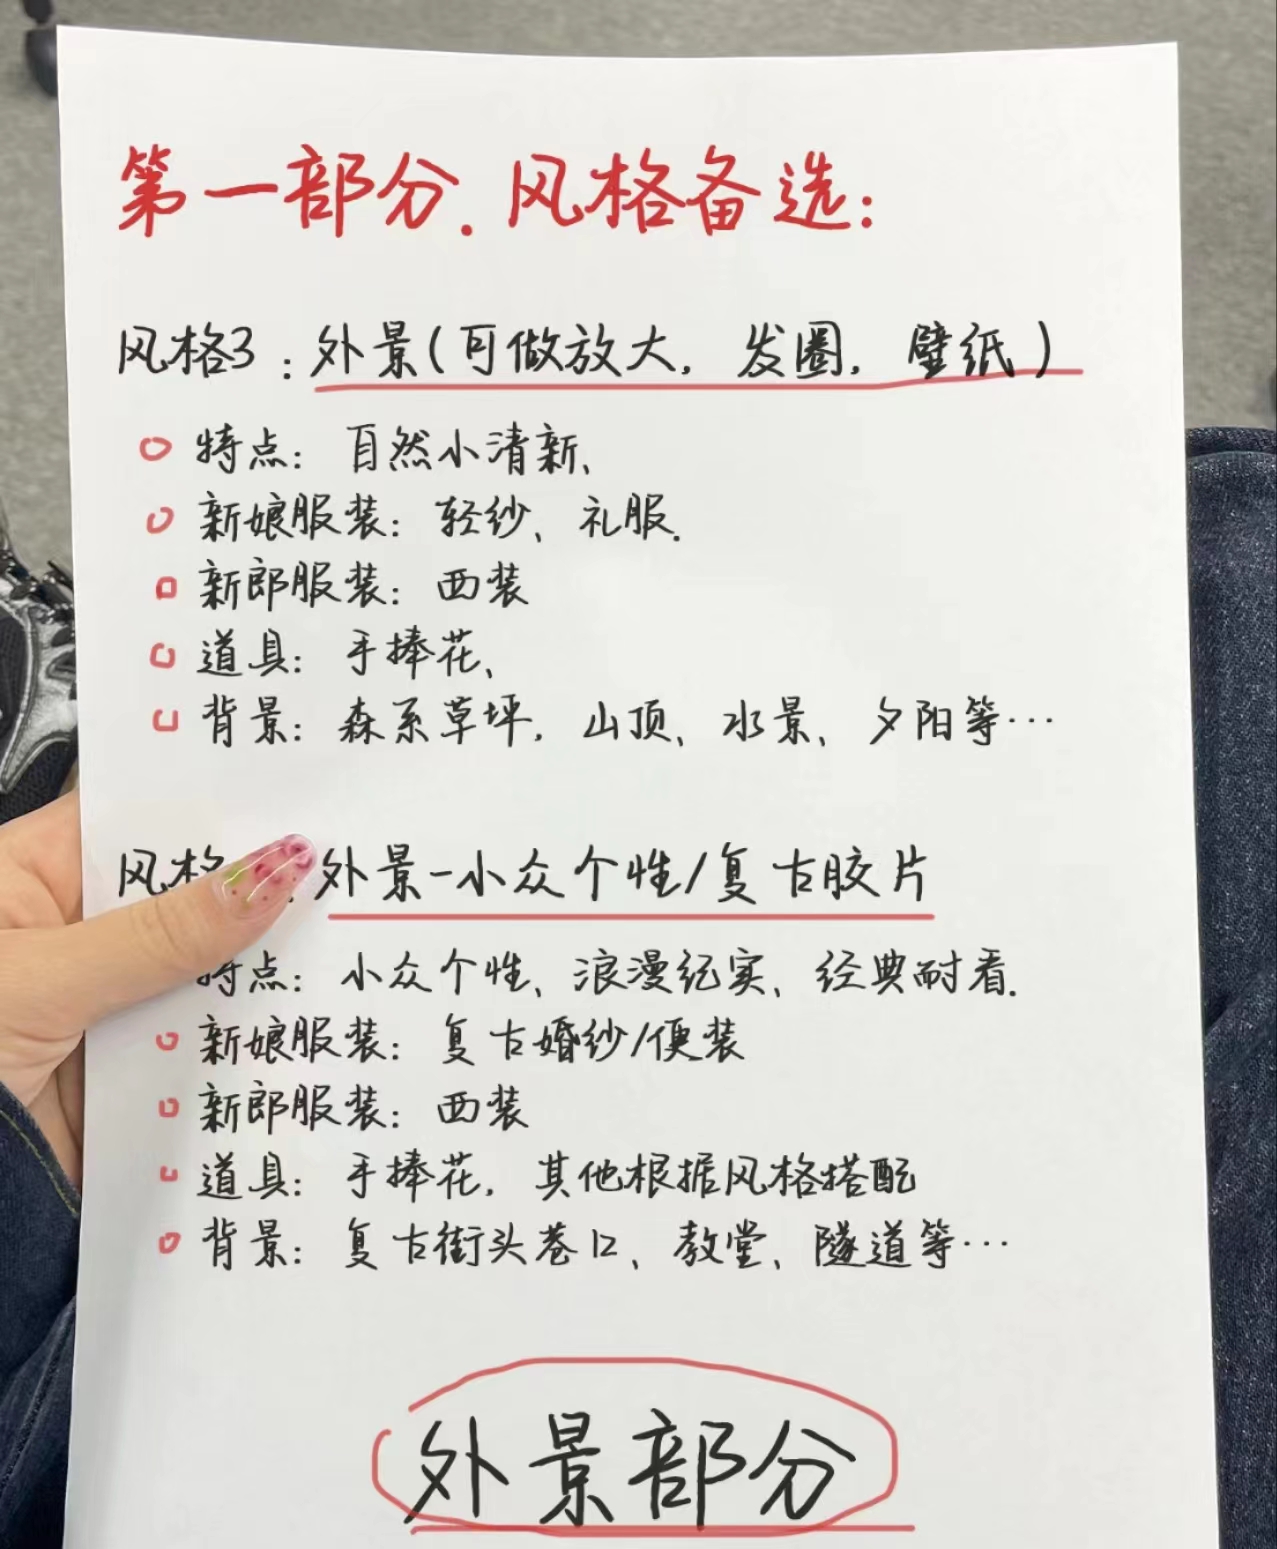 第一部分.风格备选:
风格3:外景(可做放大,发圈,壁纸)
特点:自然小清新、
新娘服装:轻纱、礼服.
新郎服装:西装
道具:手捧花、
背景:森系草坪,山顶、水景、夕阳等…
风格 外景-小众个性/复古胶片
特点:小众个性、浪漫纪实、经典耐看.
新娘服装:复古婚纱/便装
新郎服装:西装
道具:手捧花,其他根据风格搭配
背景:复古街头巷口、教堂、隧道等…
外景部分